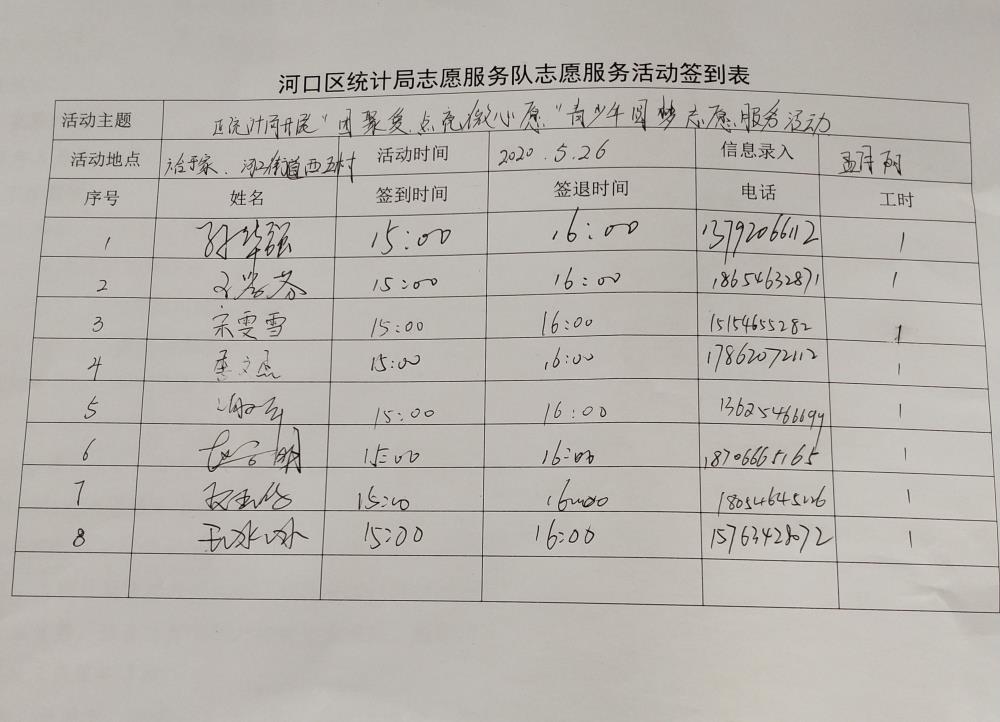 河口区统计局志愿服务队志愿服务活动签到表
活动主题 区统计局开展"团聚爱 点亮微心愿"青少年圆梦志愿服务活动
活动地点 河口街道西五村 活动时间 2020.5.26 信息录入
序号 姓名 签到时间 签退时间 电话 工时
1 孙华强 15:00 16:00 13792066112 1
2 15:00 16:00 18654632871 1
3 宋雯雪 15:00 16:00 15154655282 1
4 李文杰 15:00 16:00 17862072112 1
5 15:00 16:00 13625466699 1
6 15:00 16:00 18706665165 1
7 15:00 16:00 1
8 王冰冰 15:00 16:00 15763428072 1